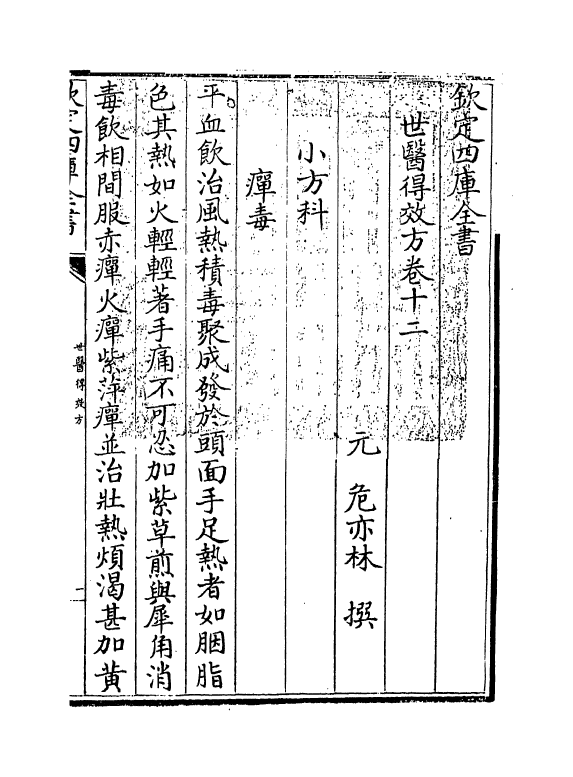 欽定四庫全書
世醫得效方卷十二
元 危亦林 撰
小方科
癉毒
平血飲治風熱積毒聚成發於頭面手足熱者如胭脂
色其熱如火輕輕著手痛不可忍加紫草煎與犀角消
毒飲相間服赤癉火癉紫萍癉並治壯熱煩渴甚加黄
欽定四庫全書
世醫得效方